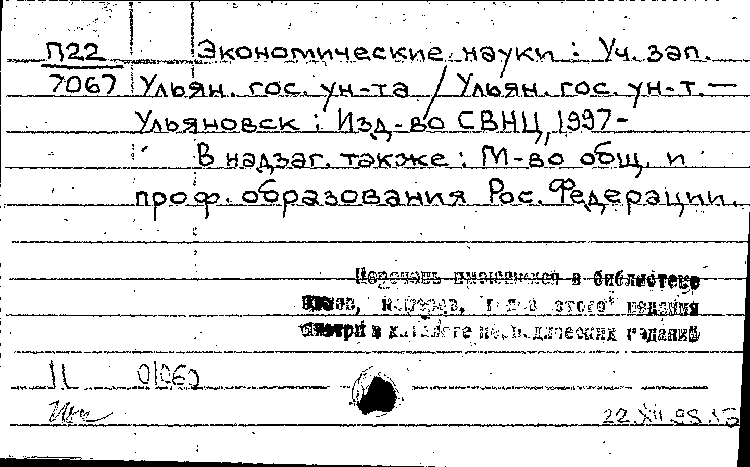 П22 Экономические науки : Уч. зап.
7067 Ульян. гос. ун-та / Ульян. гос. ун-т. —
Ульяновск : Изд-во СВНЦ, 1997-
В надзаг. также : М-во общ. и
проф. образования Рос. Федерации.
Перечень имеющихся в библиотеке
томов, номеров, этого издания
смотри в каталоге периодических изданий
11 01060
22.XII.98